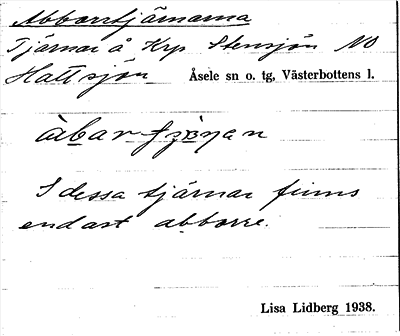 Abborrtjärnarna
Tjärnar å Krp Stensjön NO
Hattsjön Åsele sn o. tg, Västerbottens l.
I dessa tjärnar finns
endast abborre.
Lisa Lidberg 1938.